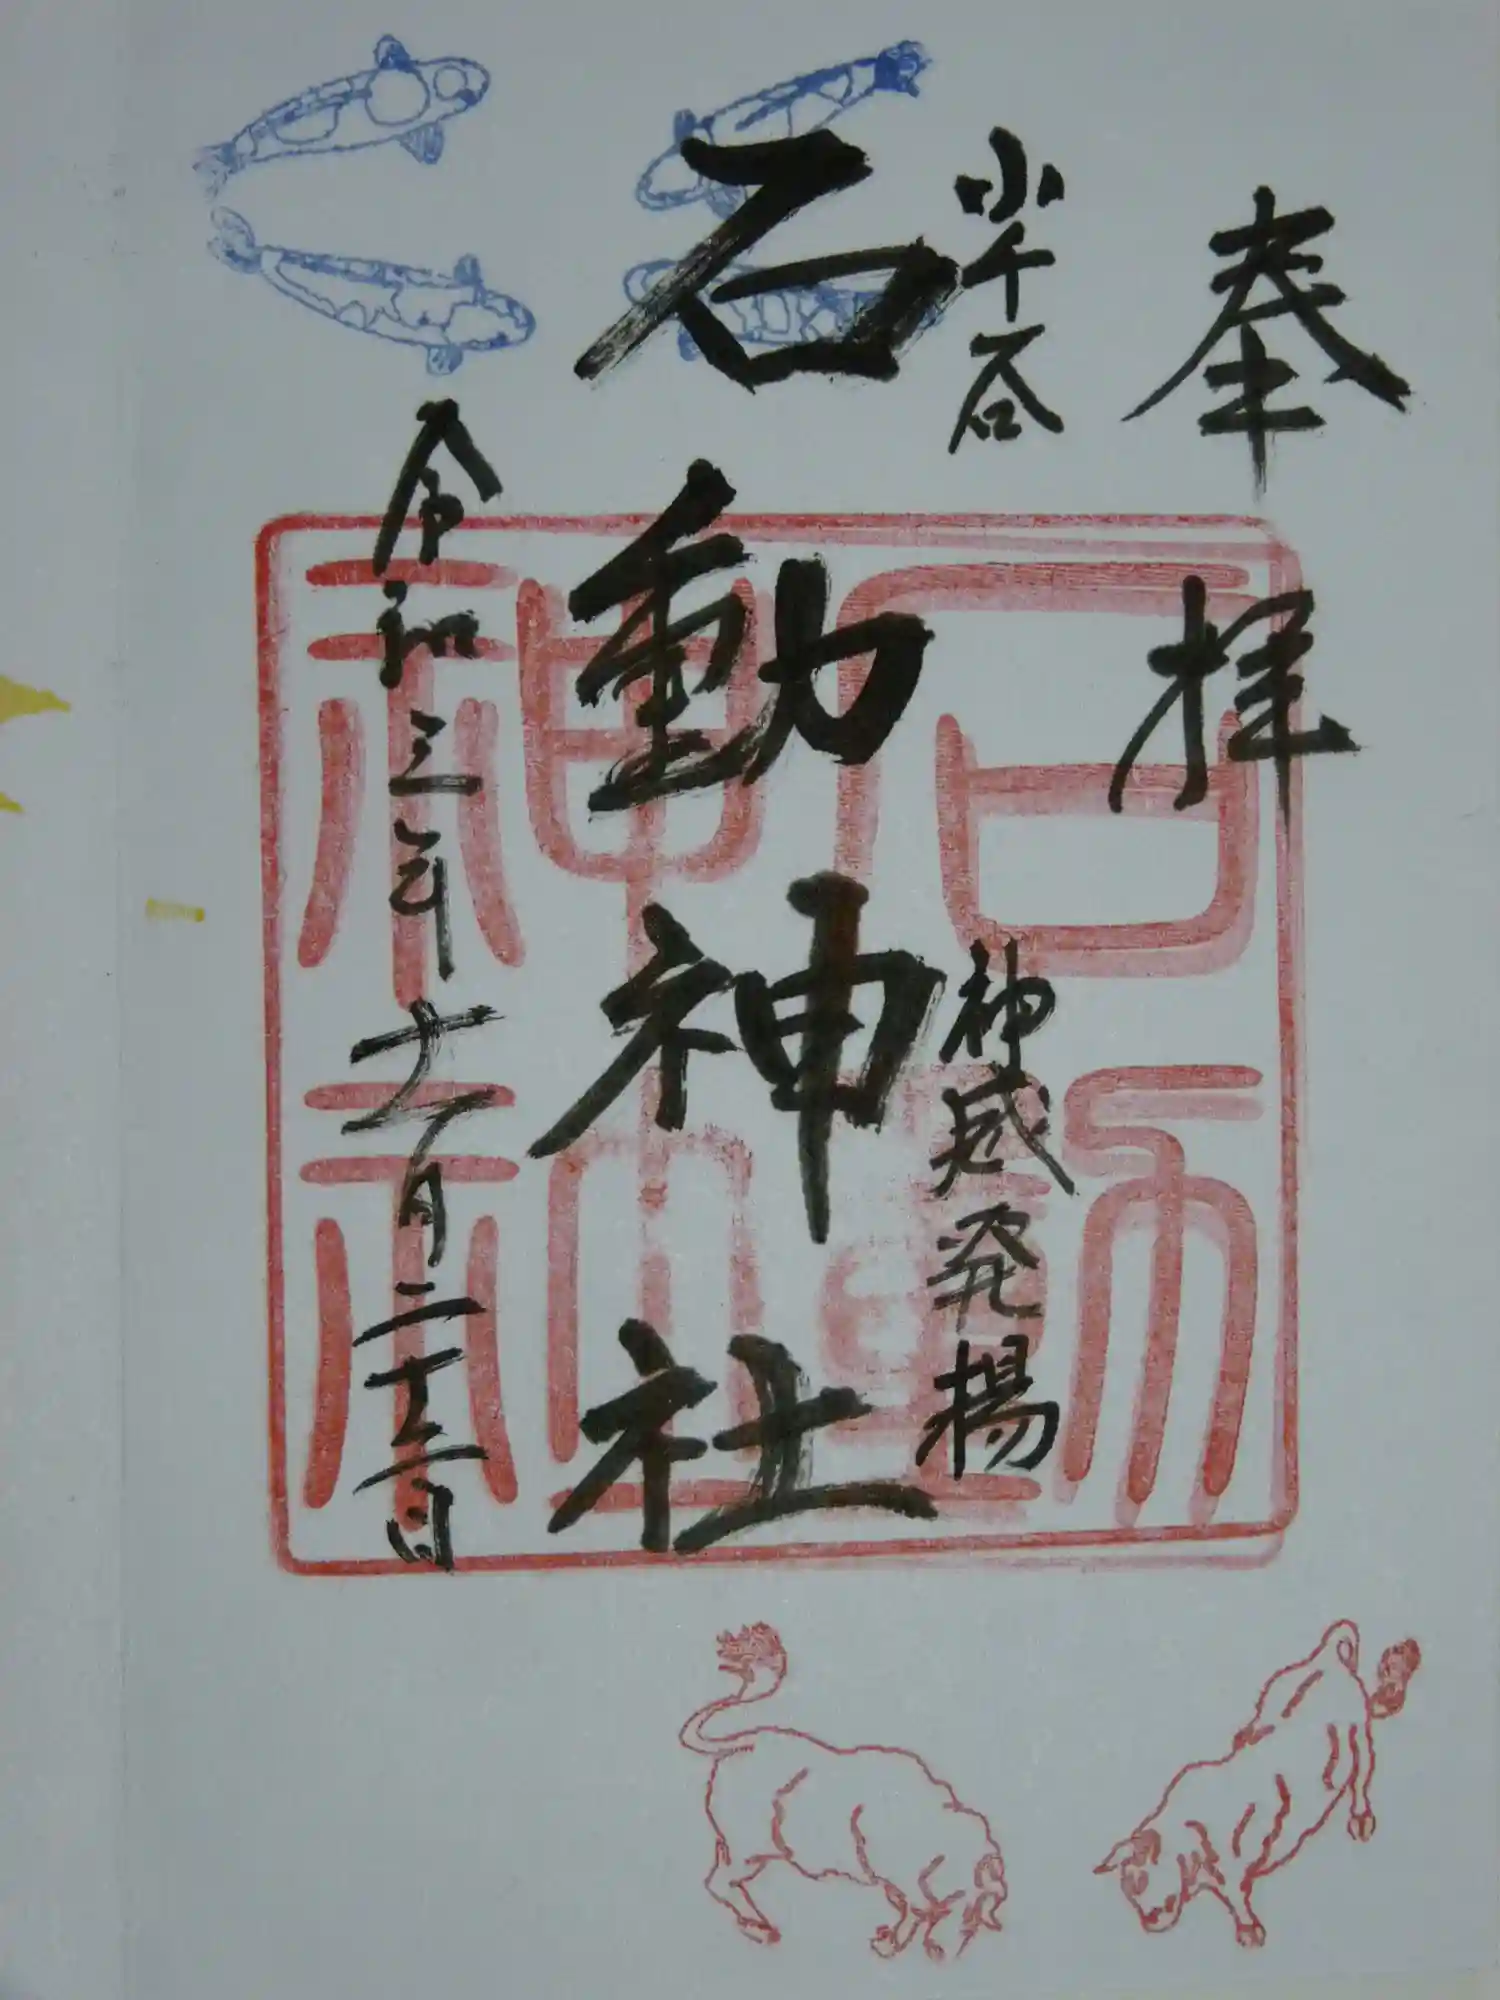 奉拝
小千谷
神威発揚
石動神社
令和三年十一月二十三日
石動
神社